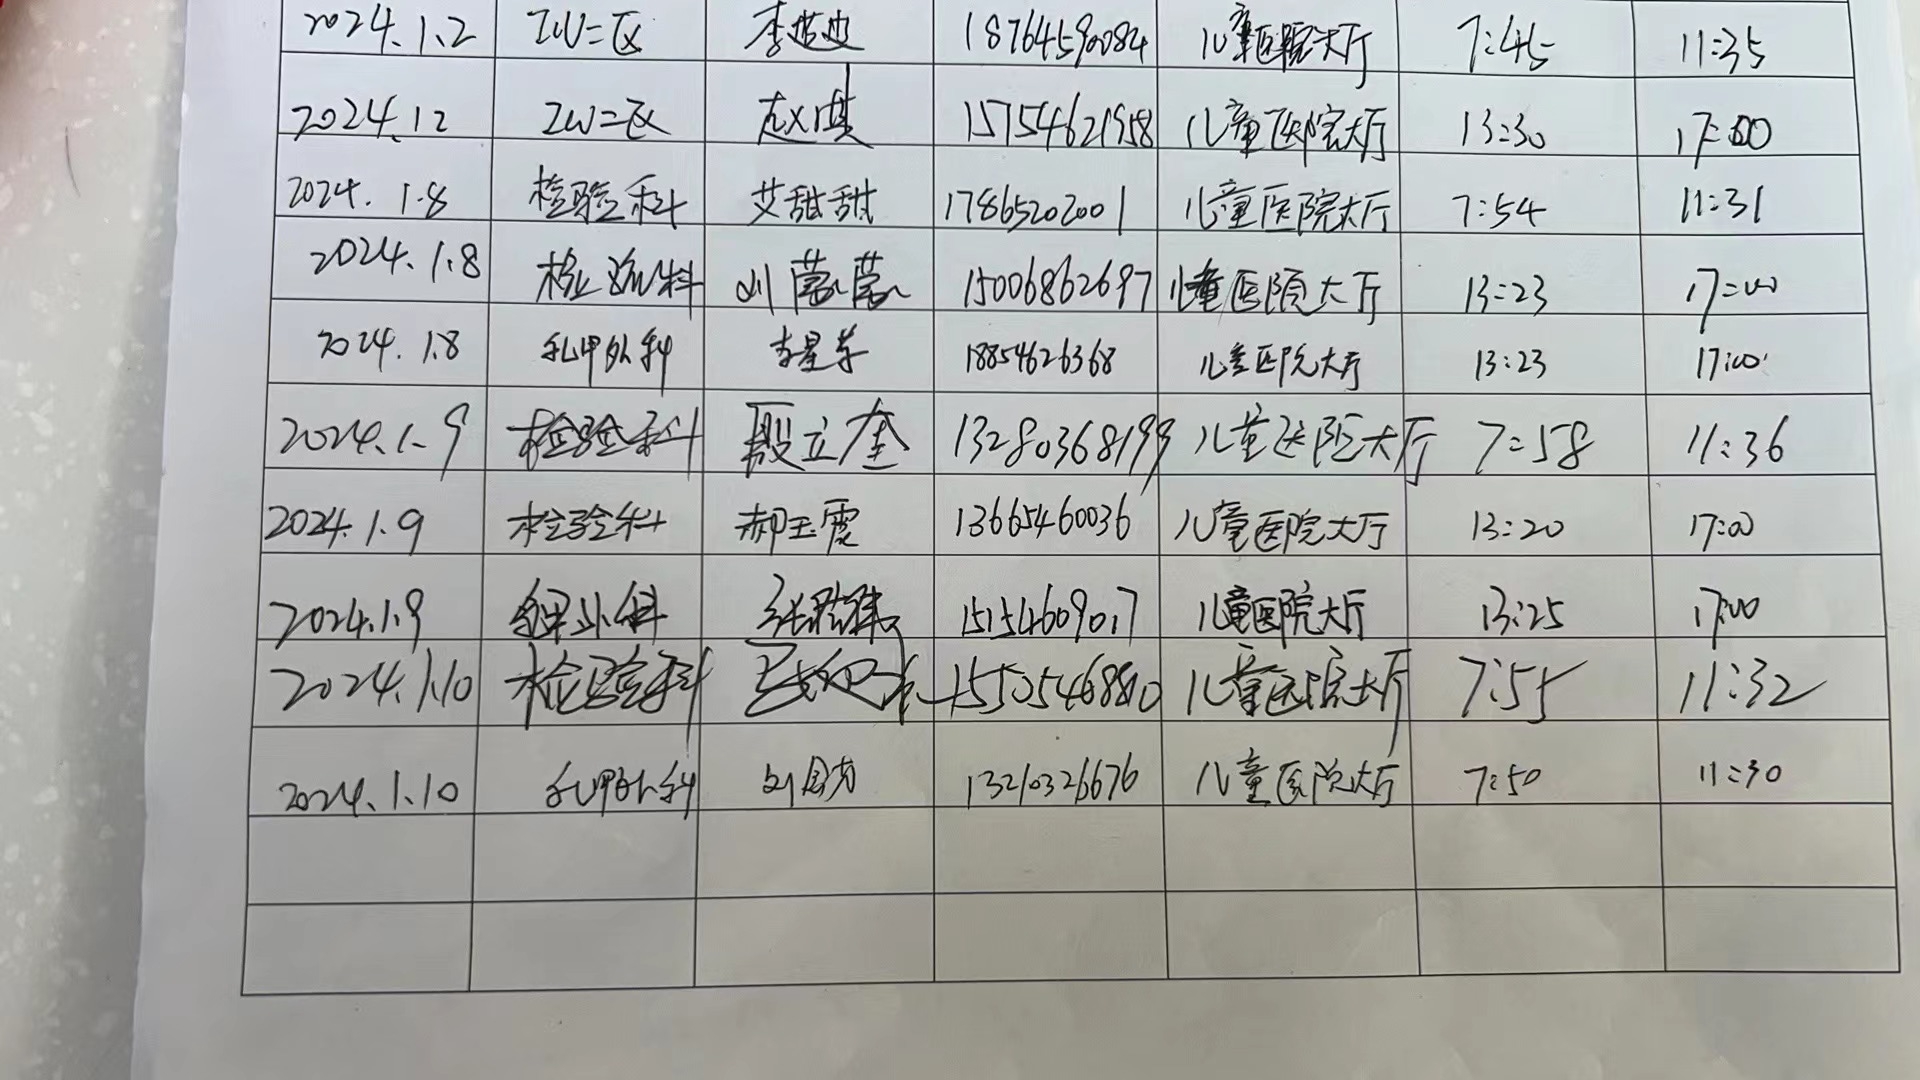 2024.1.2 ICU二区 李 18764590084 儿童医院大厅 7:45 11:35
2024.12 ICU二区 赵琪 15754621958 儿童医院大厅 13:30 17:00
2024.1.8 检验科 艾甜甜 17865202001 儿童医院大厅 7:54 11:31
2024.1.8 检验科 刘 15006862697 儿童医院大厅 13:23 17:00
2024.1.8 乳甲外科 李星 18854626368 儿童医院大厅 13:23 17:00
2024.1.9 检验科 段立奎 13280368199 儿童医院大厅 7:58 11:36
2024.1.9 检验科 郝玉霞 13665460036 儿童医院大厅 13:20 17:00
2024.1.9 外科 张 15154609017 儿童医院大厅 13:25 17:00
2024.1.10 检验科 儿童医院大厅 7:55 11:32
2024.1.10 乳甲外科 刘 13210326676 儿童医院大厅 7:50 11:30